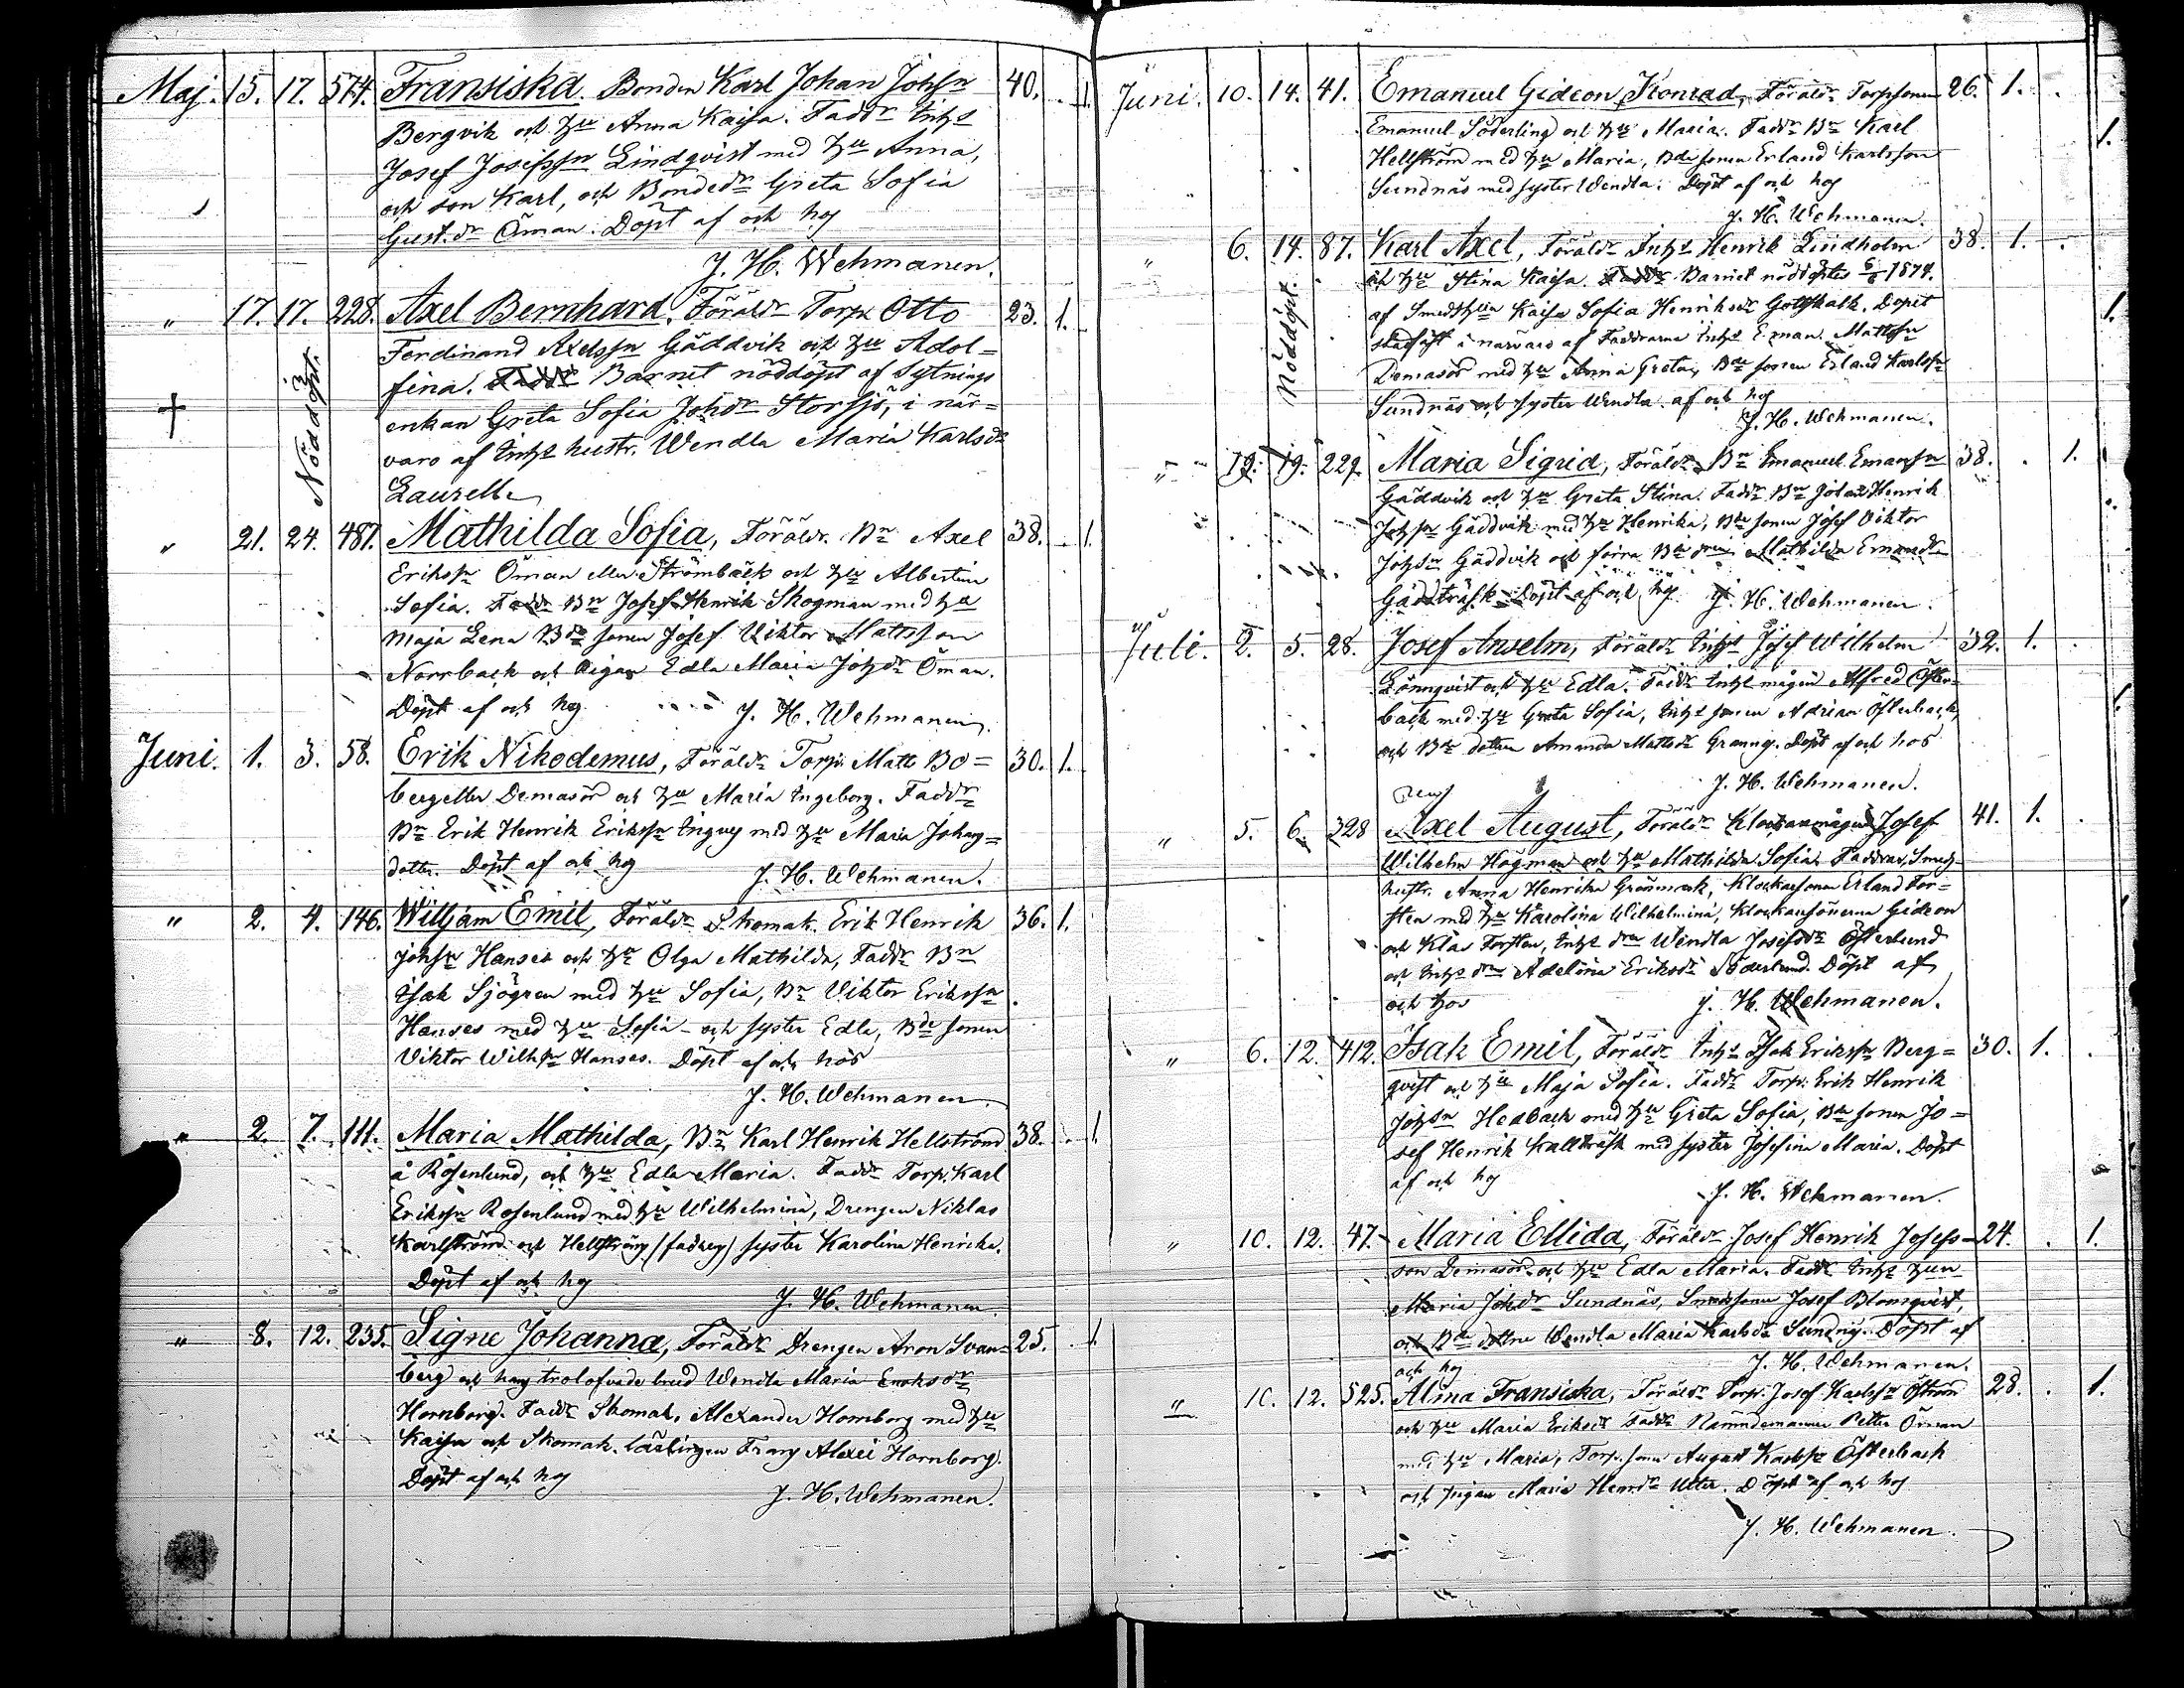 Maj. 15. 17. 574. Fransiska. Bonden Karl Johan Johsn 40. . 1.
Bergvik och hu Anna Kaisa. Faddr Inhs
Josef Josefssn Lindqvist med hu Anna,
och son Karl, och Bondedr Greta Sofia
Gust.dr Öman. Döpt af och hos
J. H. Wehmanen.
" 17. 17. 228. Axel Bernhard. Föräldr Torp. Otto 23. 1.
Ferdinand Axelssn Gäddvik och hu Adol=
fina. Faddr Barnet nöddöpt af Sytnings
enkan Greta Sofia Johsdr Storsjö, i när=
varo af Inhs hustr. Wendla Maria Karlsdr
Laurell.
Nöddöpt.
" 21. 24. 487. Mathilda Sofia, Föräldr. Bn Axel 38. . 1.
Erikssn Öman eller Strömbäck och hu Albertina
Sofia. Faddr Bn Josef Henrik Skogman med hu
Maja Lena Bde sonen Josef Viktor Mattsson
Norrback och Pigan Edla Maria Johsdr Öman.
Döpt af och hos J. H. Wehmanen.
Juni. 1. 3. 58. Erik Nikodemus, Föräldr Torp. Matts Bo= 30. 1.
berg eller Demasör och hu Maria Ingeborg. Faddr
Bn Erik Henrik Erikssn Ingves med hu Maria Johans=
dotter. Döpt af och hos J. H. Wehmanen.
" 2. 4. 146. Wilhjam Emil, Föräldr Skomak. Erik Henrik 36. 1.
Johssn Hanses och hu Olga Mathilda, Faddr Bn
Isak Sjögren med hu Sofia, Bn Viktor Erikssn
Hanses med hu Sofia och syster Edla, Bde sonen
Viktor Wilhsn Hanses. Döpt af och hos
J. H. Wehmanen.
" 2. 7. 111. Maria Mathilda, Bn Karl Henrik Hellström 38. . 1.
å Rosenlund, och hu Edla Maria. Faddr Torp. Karl
Erikssn Rosenlund med hu Wilhelmina, Drengen Niklas
Karlström och Hellströms (fadrens) syster Karolina Henrika.
Döpt af och hos
J. H. Wehmanen.
" 8. 12. 235. Signe Johanna, Föräldr Drengen Aron Svan= 25. . 1.
berg och hans trolofvade brud Wendla Maria Eriksdr
Hornborg. Faddr Skomak. Alexander Hornborg med hu
Kaisa och Skomak. lärlingen Frans Alexei Hornborg.
Döpt af och hos
J. H. Wehmanen.
Juni. 10. 14. 41. Emanuel Gideon Konrad, Föräldr Torpsonen 26. 1. .
Emanuel Söderling och hu Maria. Faddr Bn Karl
Hellström med hu Maria, Bde sonen Erland Karlsson
Sundnäs med syster Wendla. Döpt af och hos
J. H. Wehmanen.
" 6. 14. 87. Karl Axel, Föräldr Inhs Henrik Lindholm 38. 1. .
och hu Stina Kaisa. Faddr Barnet nöddöptes 6/6 1874.
af Smeds Kaisa Sofia Henriksdr Gottskalk. Dopet
stadfäst i närvaro af Faddrarna Inhs Eman. Mattssn
Demasör med hu Anna Greta, Bde sonen Erland Karlssn
Sundnäs och syster Wendla. af och hos
J. H. Wehmanen.
Nöddöpt.
" 19. 19. 229. Maria Sigrid, Föräldr Bn Emanuel Emanssn 38. . 1.
Gäddvik och hu Greta Stina. Faddr Bn Johan Henrik
Johssn Gäddvik med hu Henrika, Bde sonen Josef Viktor
Johssn Gäddvik och förra Bde Mathilda Emansdr
Gäddträsk. Döpt af och hos J. H. Wehmanen.
Juli. 2. 5. 28. Josef Anselm, Föräldr Inhs Josef Wilhelm 32. 1. .
Lönnqvist och hu Edla. Faddr Inhs mågen Alfred Öster=
back med hu Greta Sofia, Inhs sonen Adrian Österback,
och Bde dottren Amanda Mattsdr Granng. Döpt af och hos
J. H. Wehmanen.
" 5. 6. 328 Axel August, Föräldr Klockaremågen Josef 41. 1. .
Wilhelm Högman och hu Mathilda Sofia. Faddrar, Smeds
hustr. Anna Henrika Granmark, Klockarsonen Erland For=
sten med hu Karolina Wilhelmina, Klockarsönerna Gideon
och Klas Forsten, Inhs dra Wendla Josefsdr Österlund
och Inhs dra Adelina Eriksdr Söderlund. Döpt af
och hos J. H. Wehmanen.
" 6. 12. 412. Isak Emil, Föräldr Inhs Isak Erikssn Berg= 30. 1. .
qvist och hu Maja Sofia. Faddr Torp. Erik Henrik
Johssn Hedback med hu Greta Sofia, Bde sonen Jo=
sef Henrik Kallträsk med syster Josefina Maria. Döpt
af och hos
J. H. Wehmanen.
" 10. 12. 47. Maria Ellida, Föräldr Josef Henrik Josefs= 24. . 1.
son Demasör och hu Edla Maria. Faddr Inhs
Maria Johsdr Sundnäs, Smedssonen Josef Blomqvist,
och Bde dottren Wendla Maria Karlsdr Sundnäs. Döpt af
och hos J. H. Wehmanen.
" 10. 12. 525. Alma Fransiska, Föräldr Torp. Josef Karlssn Öström 28. . 1.
och hu Maria Eriksdr Faddr Nämndemannen Petter Öman
med hu Maria, Torp. sonen August Karlssn Österback
och pigan Maria Henrdr Utter. Döpt af och hos
J. H. Wehmanen.